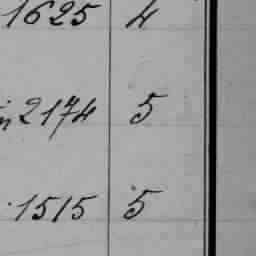 1625 4
2174 5
1515 5